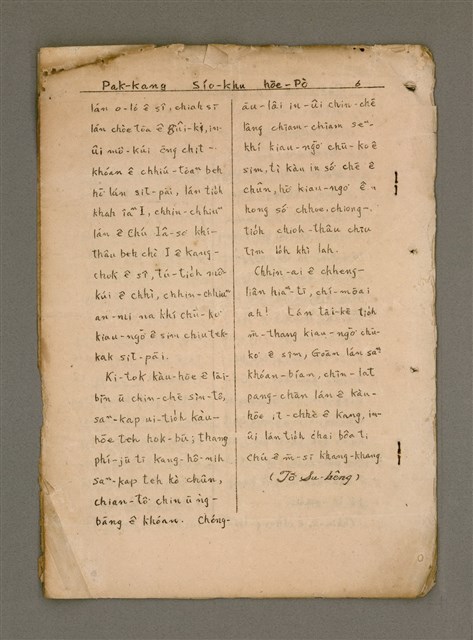 Pak-kang Sío-khu hōe-Pò 6
lán o-ló ê sî, chiah sī
lán chòe tōa ê gûi-ki, in-
ūi mô-kúi ēng chit-
khóan ê chhiú-tōaⁿ beh
hē lán sit-pāi, lán tio̍h
khah iâⁿ I, chhin-chhiūⁿ
lán ê Chú Iâ-so khí-
thâu beh chē I ê kang-
chok ê sî, tú-tio̍h mô-
kúi ê chhì, chhin-chhiūⁿ
an-ni nā khí chū-ko
kiau-ngō ê sim chiu tek-
kak sit-pāi.
Ki-tok kàu-hōe ê lāi-
bīn ū chin-chē sìn-tô,
saⁿ-kap ūi-tio̍h kàu-
hōe teh ho̍k-bū; thang
phí-jū tī kang-hn̂g-nih
saⁿ-kap teh kè chûn,
chian-tô chin ū ǹg-
bāng ê khóan. Chóng-
āu-lâi in-ūi chin-chē
lâng chiām-chiām seⁿ-
khí kiau-ngō chū-ko ê
sim, tì kàu in só͘ chē ê
chûn, hō͘ kiau-ngō ê
hong só͘ chhoe, chiong-
tio̍h chio̍h-thâu chiu
tîm lo̍h khì lah.
Chhin-ai ê chheng-
liân hiaⁿ-tī, chí-mōai
ah! Lán tāi-ke tio̍h
m̄-thang kiau-ngō chū-
ko ê sim, Goān lán saⁿ
khoán-bián, chīn-la̍t
pang-chān lán ê kàu-
hōe, it-chhè ê kang, in-
ūi lán tio̍h chai bôa tī
Chú ê m̄-sī khang-khang.
(Tō Su-hông)